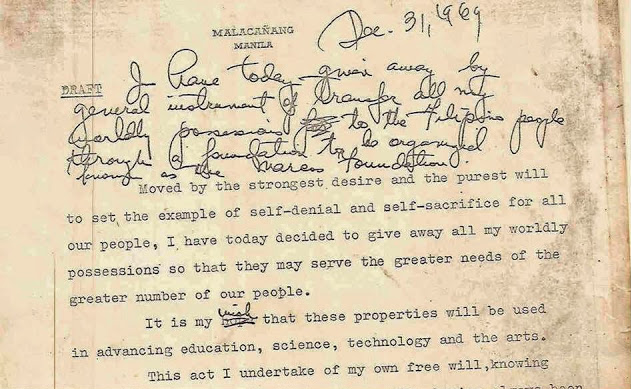 MALACAÑANG
MANILA
Dec. 31, 1969
DRAFT
I have today given away by
general instrument of transfer all my
worldly possessions to the Filipino people
through a foundation to be organized
known as the Marcos Foundation.
Moved by the strongest desire and the purest will
to set the example of self-denial and self-sacrifice for all
our people, I have today decided to give away all my worldly
possessions so that they may serve the greater needs of the
greater number of our people.
It is my wish that these properties will be used
in advancing education, science, technology and the arts.
This act I undertake of my own free will, knowing
always been